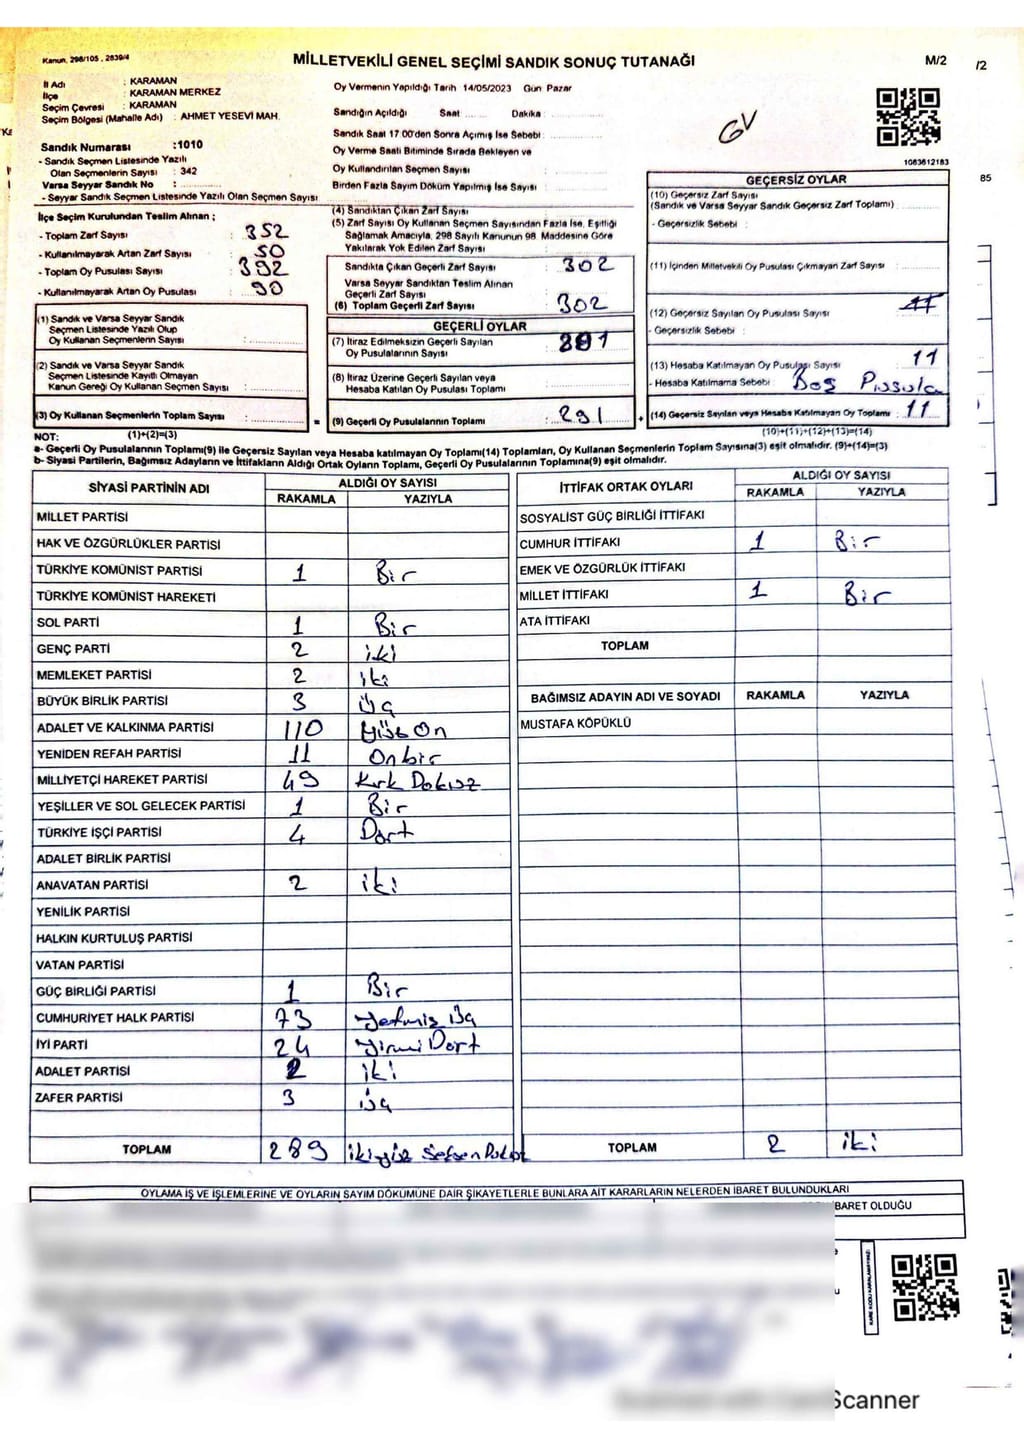 Kanun, 298/105 , 2839/4
MİLLETVEKİLİ GENEL SEÇİMİ SANDIK SONUÇ TUTANAĞI
M/2
/2
İl Adı : KARAMAN
İlçe : KARAMAN MERKEZ
Seçim Çevresi : KARAMAN
Seçim Bölgesi (Mahalle Adı) : AHMET YESEVİ MAH.
Sandık Numarası :1010
- Sandık Seçmen Listesinde Yazılı
Olan Seçmenlerin Sayısı : 342
Varsa Seyyar Sandık No :
- Seyyar Sandık Seçmen Listesinde Yazılı Olan Seçmen Sayısı :
Oy Vermenin Yapıldığı Tarih 14/05/2023 Gün Pazar
Sandığın Açıldığı Saat Dakika :
Sandık Saat 17 00'den Sonra Açılmış İse Sebebi :
Oy Verme Saati Bitiminde Sırada Bekleyen ve
Oy Kullandırılan Seçmen Sayısı :
Birden Fazla Sayım Döküm Yapılmış İse Sayısı :
GV
1083612183
85
İlçe Seçim Kurulundan Teslim Alınan ;
- Toplam Zarf Sayısı : 352
- Kullanılmayarak Artan Zarf Sayısı : 50
- Toplam Oy Pusulası Sayısı : 392
- Kullanılmayarak Artan Oy Pusulası : 90
(1) Sandık ve Varsa Seyyar Sandık
Seçmen Listesinde Yazılı Olup
Oy Kullanan Seçmenlerin Sayısı :
(2) Sandık ve Varsa Seyyar Sandık
Seçmen Listesinde Kayıtlı Olmayan
Kanun Gereği Oy Kullanan Seçmen Sayısı :
(3) Oy Kullanan Seçmenlerin Toplam Sayısı : =
(1)+(2)=(3)
(4) Sandıktan Çıkan Zarf Sayısı
(5) Zarf Sayısı Oy Kullanan Seçmen Sayısından Fazla İse, Eşitliği
Sağlamak Amacıyla, 298 Sayılı Kanunun 98 Maddesine Göre
Yakılarak Yok Edilen Zarf Sayısı :
Sandıkta Çıkan Geçerli Zarf Sayısı : 302
Varsa Seyyar Sandıktan Teslim Alınan
Geçerli Zarf Sayısı :
(6) Toplam Geçerli Zarf Sayısı : 302
GEÇERLİ OYLAR
(7) İtiraz Edilmeksizin Geçerli Sayılan
Oy Pusulalarının Sayısı : 291
(8) İtiraz Üzerine Geçerli Sayılan veya
Hesaba Katılan Oy Pusulası Toplamı :
(9) Geçerli Oy Pusulalarının Toplamı : 291 +
GEÇERSİZ OYLAR
(10) Geçersiz Zarf Sayısı
(Sandık ve Varsa Seyyar Sandık Geçersiz Zarf Toplamı) :
- Geçersizlik Sebebi :
(11) İçinden Milletvekili Oy Pusulası Çıkmayan Zarf Sayısı :
(12) Geçersiz Sayılan Oy Pusulası Sayısı : 11
- Geçersizlik Sebebi :
(13) Hesaba Katılmayan Oy Pusulası Sayısı : 11
- Hesaba Katılmama Sebebi : Boş Pussula
(14) Geçersiz Sayılan veya Hesaba Katılmayan Oy Toplamı : 11
(10)+(11)+(12)+(13)=(14)
NOT:
a- Geçerli Oy Pusulalarının Toplamı(9) ile Geçersiz Sayılan veya Hesaba katılmayan Oy Toplamı(14) Toplamları, Oy Kullanan Seçmenlerin Toplam Sayısına(3) eşit olmalıdır. (9)+(14)=(3)
b- Siyasi Partilerin, Bağımsız Adayların ve İttifakların Aldığı Ortak Oyların Toplamı, Geçerli Oy Pusulalarının Toplamına(9) eşit olmalıdır.
SİYASİ PARTİNİN ADI ALDIĞI OY SAYISI
RAKAMLA YAZIYLA
MİLLET PARTİSİ
HAK VE ÖZGÜRLÜKLER PARTİSİ
TÜRKİYE KOMÜNİST PARTİSİ 1 Bir
TÜRKİYE KOMÜNİST HAREKETİ
SOL PARTİ 1 Bir
GENÇ PARTİ 2 iki
MEMLEKET PARTİSİ 2 iki
BÜYÜK BİRLİK PARTİSİ 3 Üç
ADALET VE KALKINMA PARTİSİ 110 Yüz On
YENİDEN REFAH PARTİSİ 11 Onbir
MİLLİYETÇİ HAREKET PARTİSİ 49 Kırk Dokuz
YEŞİLLER VE SOL GELECEK PARTİSİ 1 Bir
TÜRKİYE İŞÇİ PARTİSİ 4 Dört
ADALET BİRLİK PARTİSİ
ANAVATAN PARTİSİ 2 iki
YENİLİK PARTİSİ
HALKIN KURTULUŞ PARTİSİ
VATAN PARTİSİ
GÜÇ BİRLİĞİ PARTİSİ 1 Bir
CUMHURİYET HALK PARTİSİ 73 Yetmiş Üç
İYİ PARTİ 24 Yirmi Dört
ADALET PARTİSİ 2 iki
ZAFER PARTİSİ 3 üç
TOPLAM 289 ikiyüz Seksen Dokuz
İTTİFAK ORTAK OYLARI ALDIĞI OY SAYISI
RAKAMLA YAZIYLA
SOSYALİST GÜÇ BİRLİĞİ İTTİFAKI
CUMHUR İTTİFAKI 1 Bir
EMEK VE ÖZGÜRLÜK İTTİFAKI
MİLLET İTTİFAKI 1 Bir
ATA İTTİFAKI
TOPLAM
BAĞIMSIZ ADAYIN ADI VE SOYADI RAKAMLA YAZIYLA
MUSTAFA KÖPÜKLÜ
TOPLAM 2 iki
OYLAMA İŞ VE İŞLEMLERİNE VE OYLARIN SAYIM DÖKÜMÜNE DAİR ŞİKAYETLERLE BUNLARA AİT KARARLARIN NELERDEN İBARET BULUNDUKLARI
İBARET OLDUĞU
Scanner